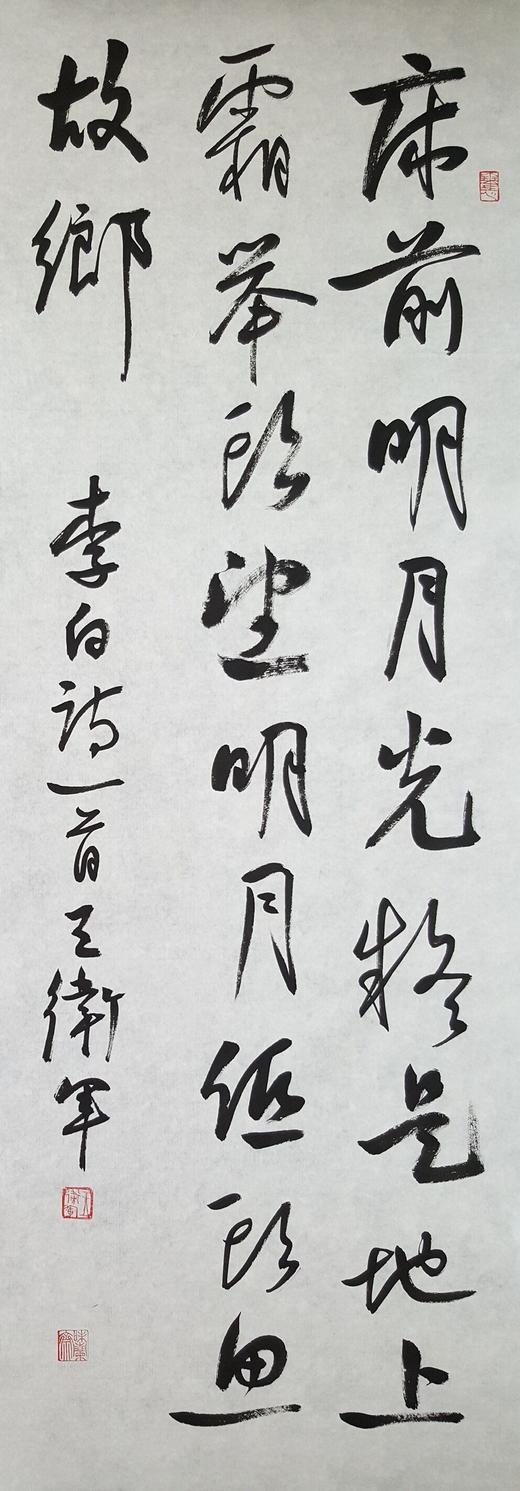 床前明月光疑是地上
霜举头望明月低头思
故鄉
李白詩一首王衛军